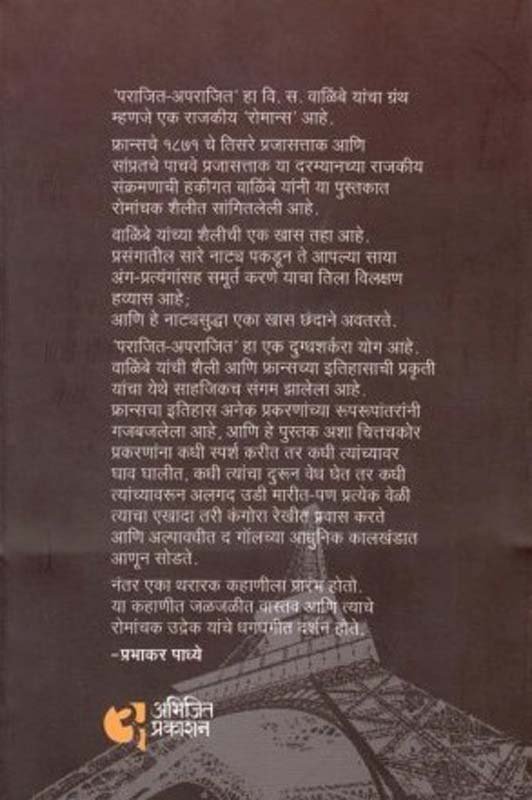 'पराजित-अपराजित' हा वि. स. वाळिंबे यांचा ग्रंथ
म्हणजे एक राजकीय 'रोमान्स' आहे.
फ्रान्सचे १८७१ चे तिसरे प्रजासत्ताक आणि
सांप्रतचे पाचवे प्रजासत्ताक या दरम्यानच्या राजकीय
संक्रमणाची हकीगत वाळिंबे यांनी या पुस्तकात
रोमांचक शैलीत सांगितलेली आहे.
वाळिंबे यांच्या शैलीची एक खास तहा आहे.
प्रसंगातील सारे नाट्य पकडून ते आपल्या साया
अंग-प्रत्यंगांसह समूर्त करणे याचा तिला विलक्षण
हव्यास आहे;
आणि हे नाट्यसुद्धा एका खास छंदाने अवतरते.
'पराजित-अपराजित' हा एक दुग्धशर्करा योग आहे.
वाळिंबे यांची शैली आणि फ्रान्सच्या इतिहासाची प्रकृती
यांचा येथे साहजिकच संगम झालेला आहे.
फ्रान्सचा इतिहास अनेक प्रकरणांच्या रूपरूपांतरांनी
गजबजलेला आहे, आणि हे पुस्तक अशा चित्तचकोर
प्रकरणांना कधी स्पर्श करीत तर कधी त्यांच्यावर
घाव घालीत, कधी त्यांचा दुरून वेध घेत तर कधी
त्यांच्यावरून अलगद उडी मारीत-पण प्रत्येक वेळी
त्याचा एखादा तरी कंगोरा रेखीत प्रवास करते
आणि अल्पावधीत द गॉलच्या आधुनिक कालखंडात
आणून सोडते.
नंतर एका थरारक कहाणीला प्रारंभ होतो.
या कहाणीत जळजळीत वास्तव आणि त्याचे
रोमांचक उद्रेक यांचे धगधगीत दर्शन होते.
-प्रभाकर पाध्ये
अभिजित
प्रकाशन